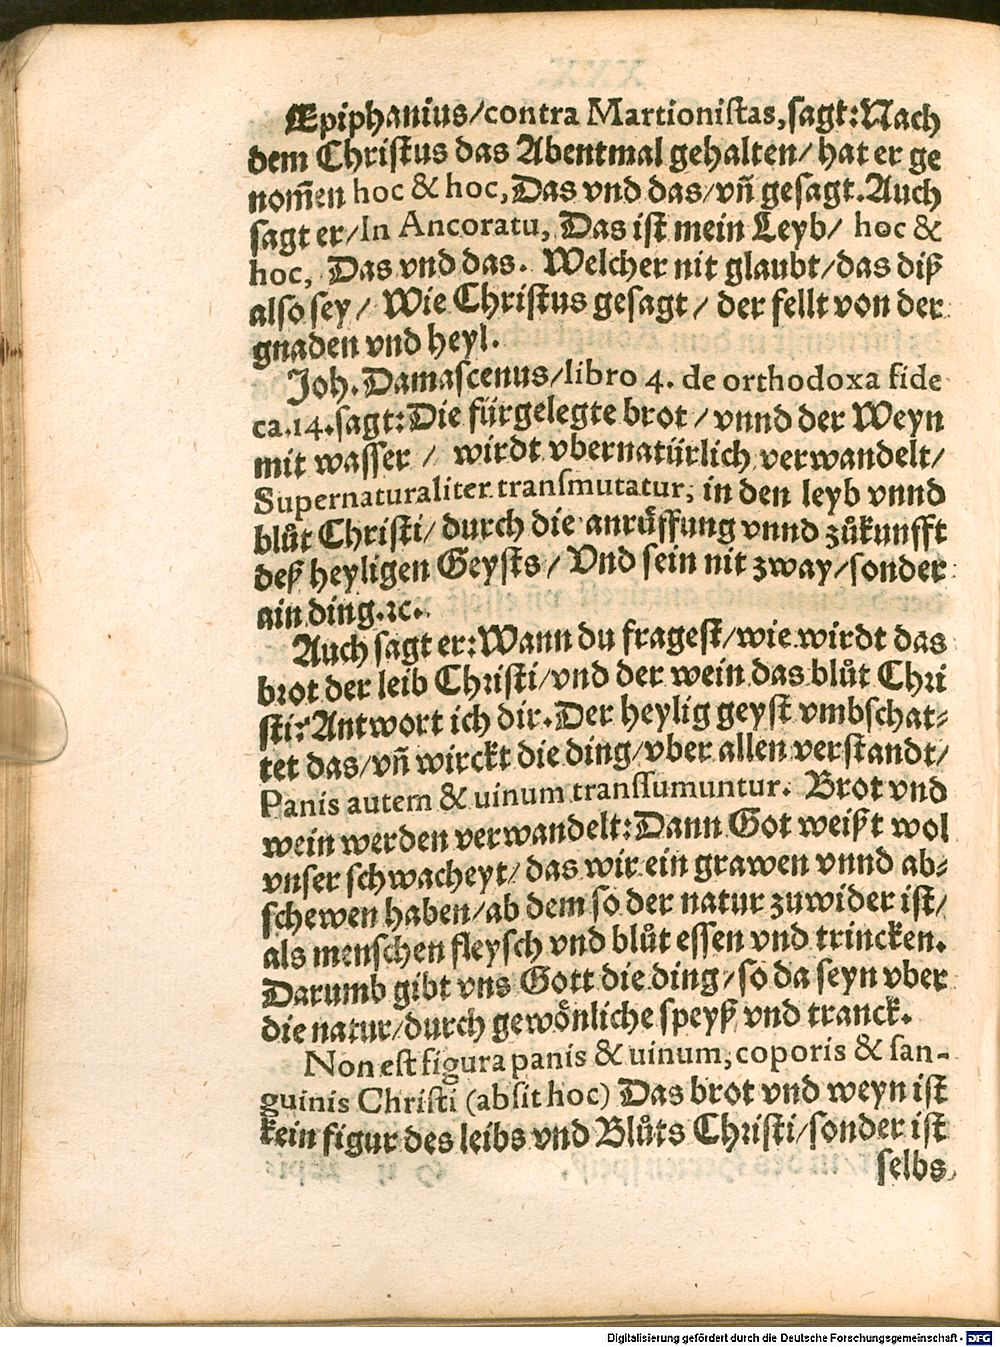 Epiphanius/contra Martionistas, sagt: Nach
dem Christus das Abentmal gehalten/ hat er ge
nom̃en hoc & hoc, Das vnd das/vn̄ gesagt. Auch
sagt er/In Ancoratu, Das ist mein Leyb/ hoc &
hoc, Das vnd das. Welcher nit glaubt/das diß
also sey/ Wie Christus gesagt/ der fellt von der
gnaden vnd heyl.
Joh. Damascenus/libro 4. de orthodoxa fide
ca.14.sagt: Die fürgelegte brot/ vnnd der Weyn
mit wasser/ wirdt vbernatürlich verwandelt/
Supernaturaliter transmutatur, in den leyb vnnd
blůt Christi/ durch die anrüffung vnnd zůkunfft
deß heyligen Geysts/ Vnd sein nit zway/sonder
ain ding.ꝛc.
Auch sagt er: Wann du fragest/wie wirdt das
brot der leib Christi/vnd der wein das blůt Chri
sti: Antwort ich dir. Der heylig geyst vmbschat⸗
tet das/vn̄ wirckt die ding/vber allen verstandt/
Panis autem & uinum transsumuntur. Brot vnd
wein werden verwandelt: Dann Got weißt wol
vnser schwacheyt/das wir ein grawen vnnd ab⸗
schewen haben/ab dem so der natur zuwider ist/
als menschen fleysch vnd blůt essen vnd trincken.
Darumb gibt vns Gott die ding/so da seyn vber
die natur/durch gewönliche speyß vnd tranck.
Non est figura panis & uinum, coporis & san-
guinis Christi (absit hoc) Das brot vnd weyn ist
kein figur des leibs vnd Blůts Christi/sonder ist
selbs
Digitalisierung gefördert durch die Deutsche Forschungsgemeinschaft - DFG